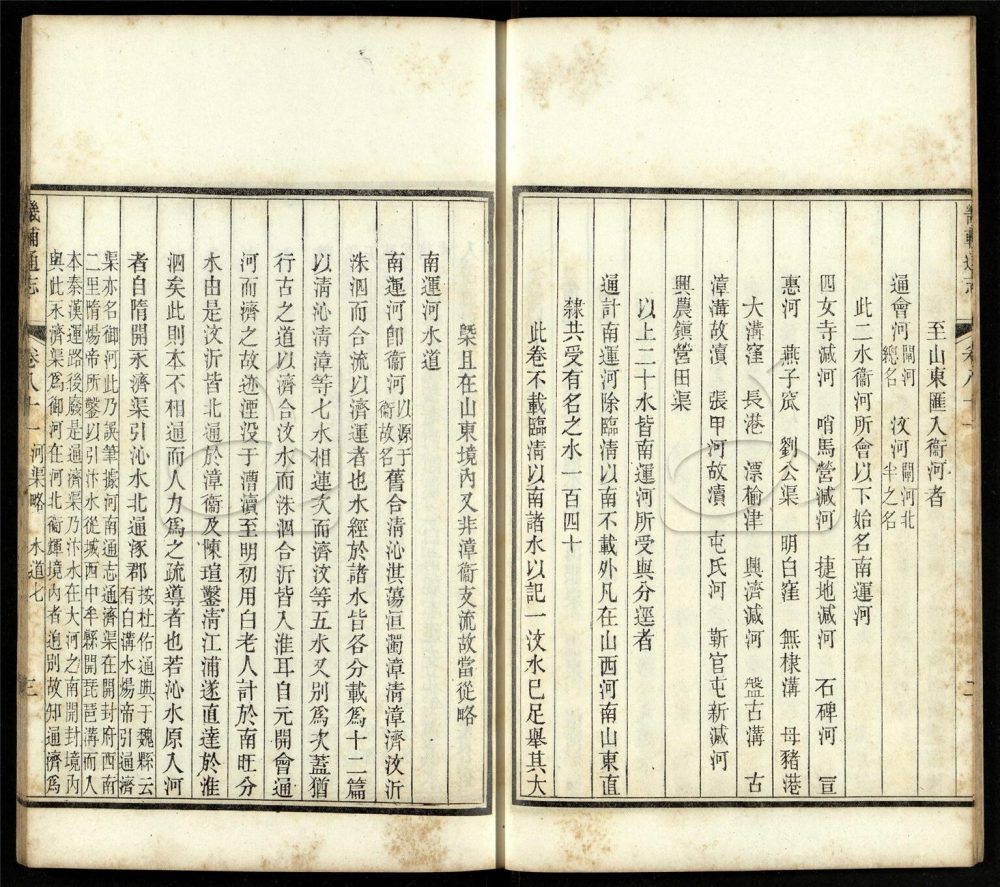 至山東匯入衞河者
通會河閘河總名　汶河閘河北半之名
此二水衞河所會以下始名南運河
四女寺減河　哨馬營減河　捷地減河　石碑河　宣
惠河　燕子窊　劉公渠　明白窪　無棣溝　母豬港
大溝窪　長港　漂榆津　興濟減河　盤古溝　古
漳溝故瀆　張甲河故瀆　屯氏河　靳官屯新減河
興農鎮營田渠
以上二十水皆南運河所受與分逕者
通計南運河除臨清以南不載外凡在山西河南山東直
隸共受有名之水一百四十
此卷不載臨清以南諸水以記一汶水已足舉其大
槩且在山東境內又非漳衞支流故當從略
南運河水道
南運河卽衞河以源于衞故名舊合清沁淇蕩洹濁漳清漳濟汶沂
洙泗而合流以濟運者也水經於諸水皆各分載爲十二篇
以清沁清漳等七水相連次而濟汶等五水又別爲次蓋猶
行古之道以濟合汶水而洙泗合沂皆入淮耳自元開會通
河而濟之故迹湮没于漕瀆至明初用白老人計於南旺分
水由是汶沂皆北通於漳衞及陳瑄鑿清江浦遂直達於淮
泗矣此則本不相通而人力爲之疏導者也若沁水原入河
者自隋開永濟渠引沁水北通涿郡按杜佑通典于魏縣云有白溝水煬帝引通濟
渠亦名御河此乃誤筆據河南通志通濟渠在開封府西南
二里隋煬帝所鑿以引汴水從城西中牟縣開琵琶溝而入
本秦漢運路後廢是通濟渠乃汴水在大河之南開封境內
與此永濟渠爲御河在河北衞輝境內者迥別故知通濟爲
畿輔通志　卷八十一　河渠略　水道七　三